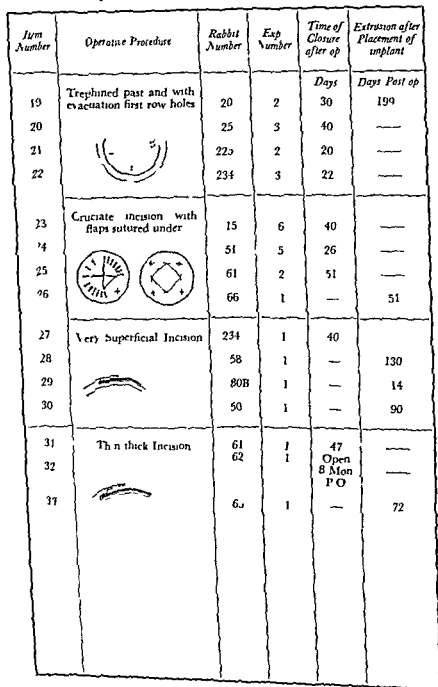 Item Number | Operative Procedure | Rabbit Number | Exp Number | Time of Closure after op | Extrusion after Placement of implant
Days | Days Post op
Trephined past and with
19 | evacuation first row holes | 20 | 2 | 30 | 199
20 | 25 | 3 | 40 | —
21 | 2 | 20 | —
22 | 234 | 3 | 22 | —
Cruciate incision with
23 | flaps sutured under | 15 | 6 | 40 | —
24 | 51 | 5 | 26 | —
25 | 61 | 2 | 51 | —
26 | 66 | 1 | — | 51
27 | Very Superficial Incision | 234 | 1 | 40
28 | 58 | 1 | — | 130
29 | 80B | 1 | — | 14
30 | 50 | 1 | — | 90
31 | Th n thick Incision | 61 | 1 | 47 | —
32 | 62 | 1 | Open | —
8 Mon
P O
1 | — | 72